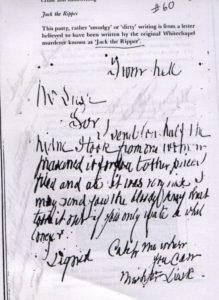 #60
Jack the Ripper
This pasty, rather 'smudgy' or 'dirty' writing is from a letter
believed to have been written by the original Whitechapel
murderer known as 'Jack the Ripper'.
From hell
Mr Lusk
Sor
I send you half the
Kidne I took from one women
prasarved it for you tother piece I
fried and ate it was very nise I
may send you the bloody knif that
took it out if you only wate a whil
longer
signed
Catch me when
you can
Mishter Lusk